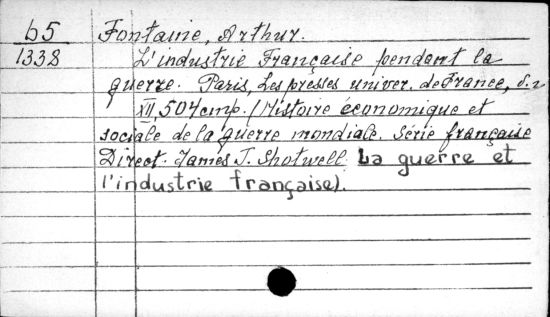 b5 Fontaine, Arthur.
1338 L'industrie Française pendant la
guerre. Paris, Les presses univer. de France, s.
XII, 504 cmp. (Histoire économique et
sociale de la guerre mondiale. Série française
Direct. James T. Shotwell. La guerre et
l'industrie française).